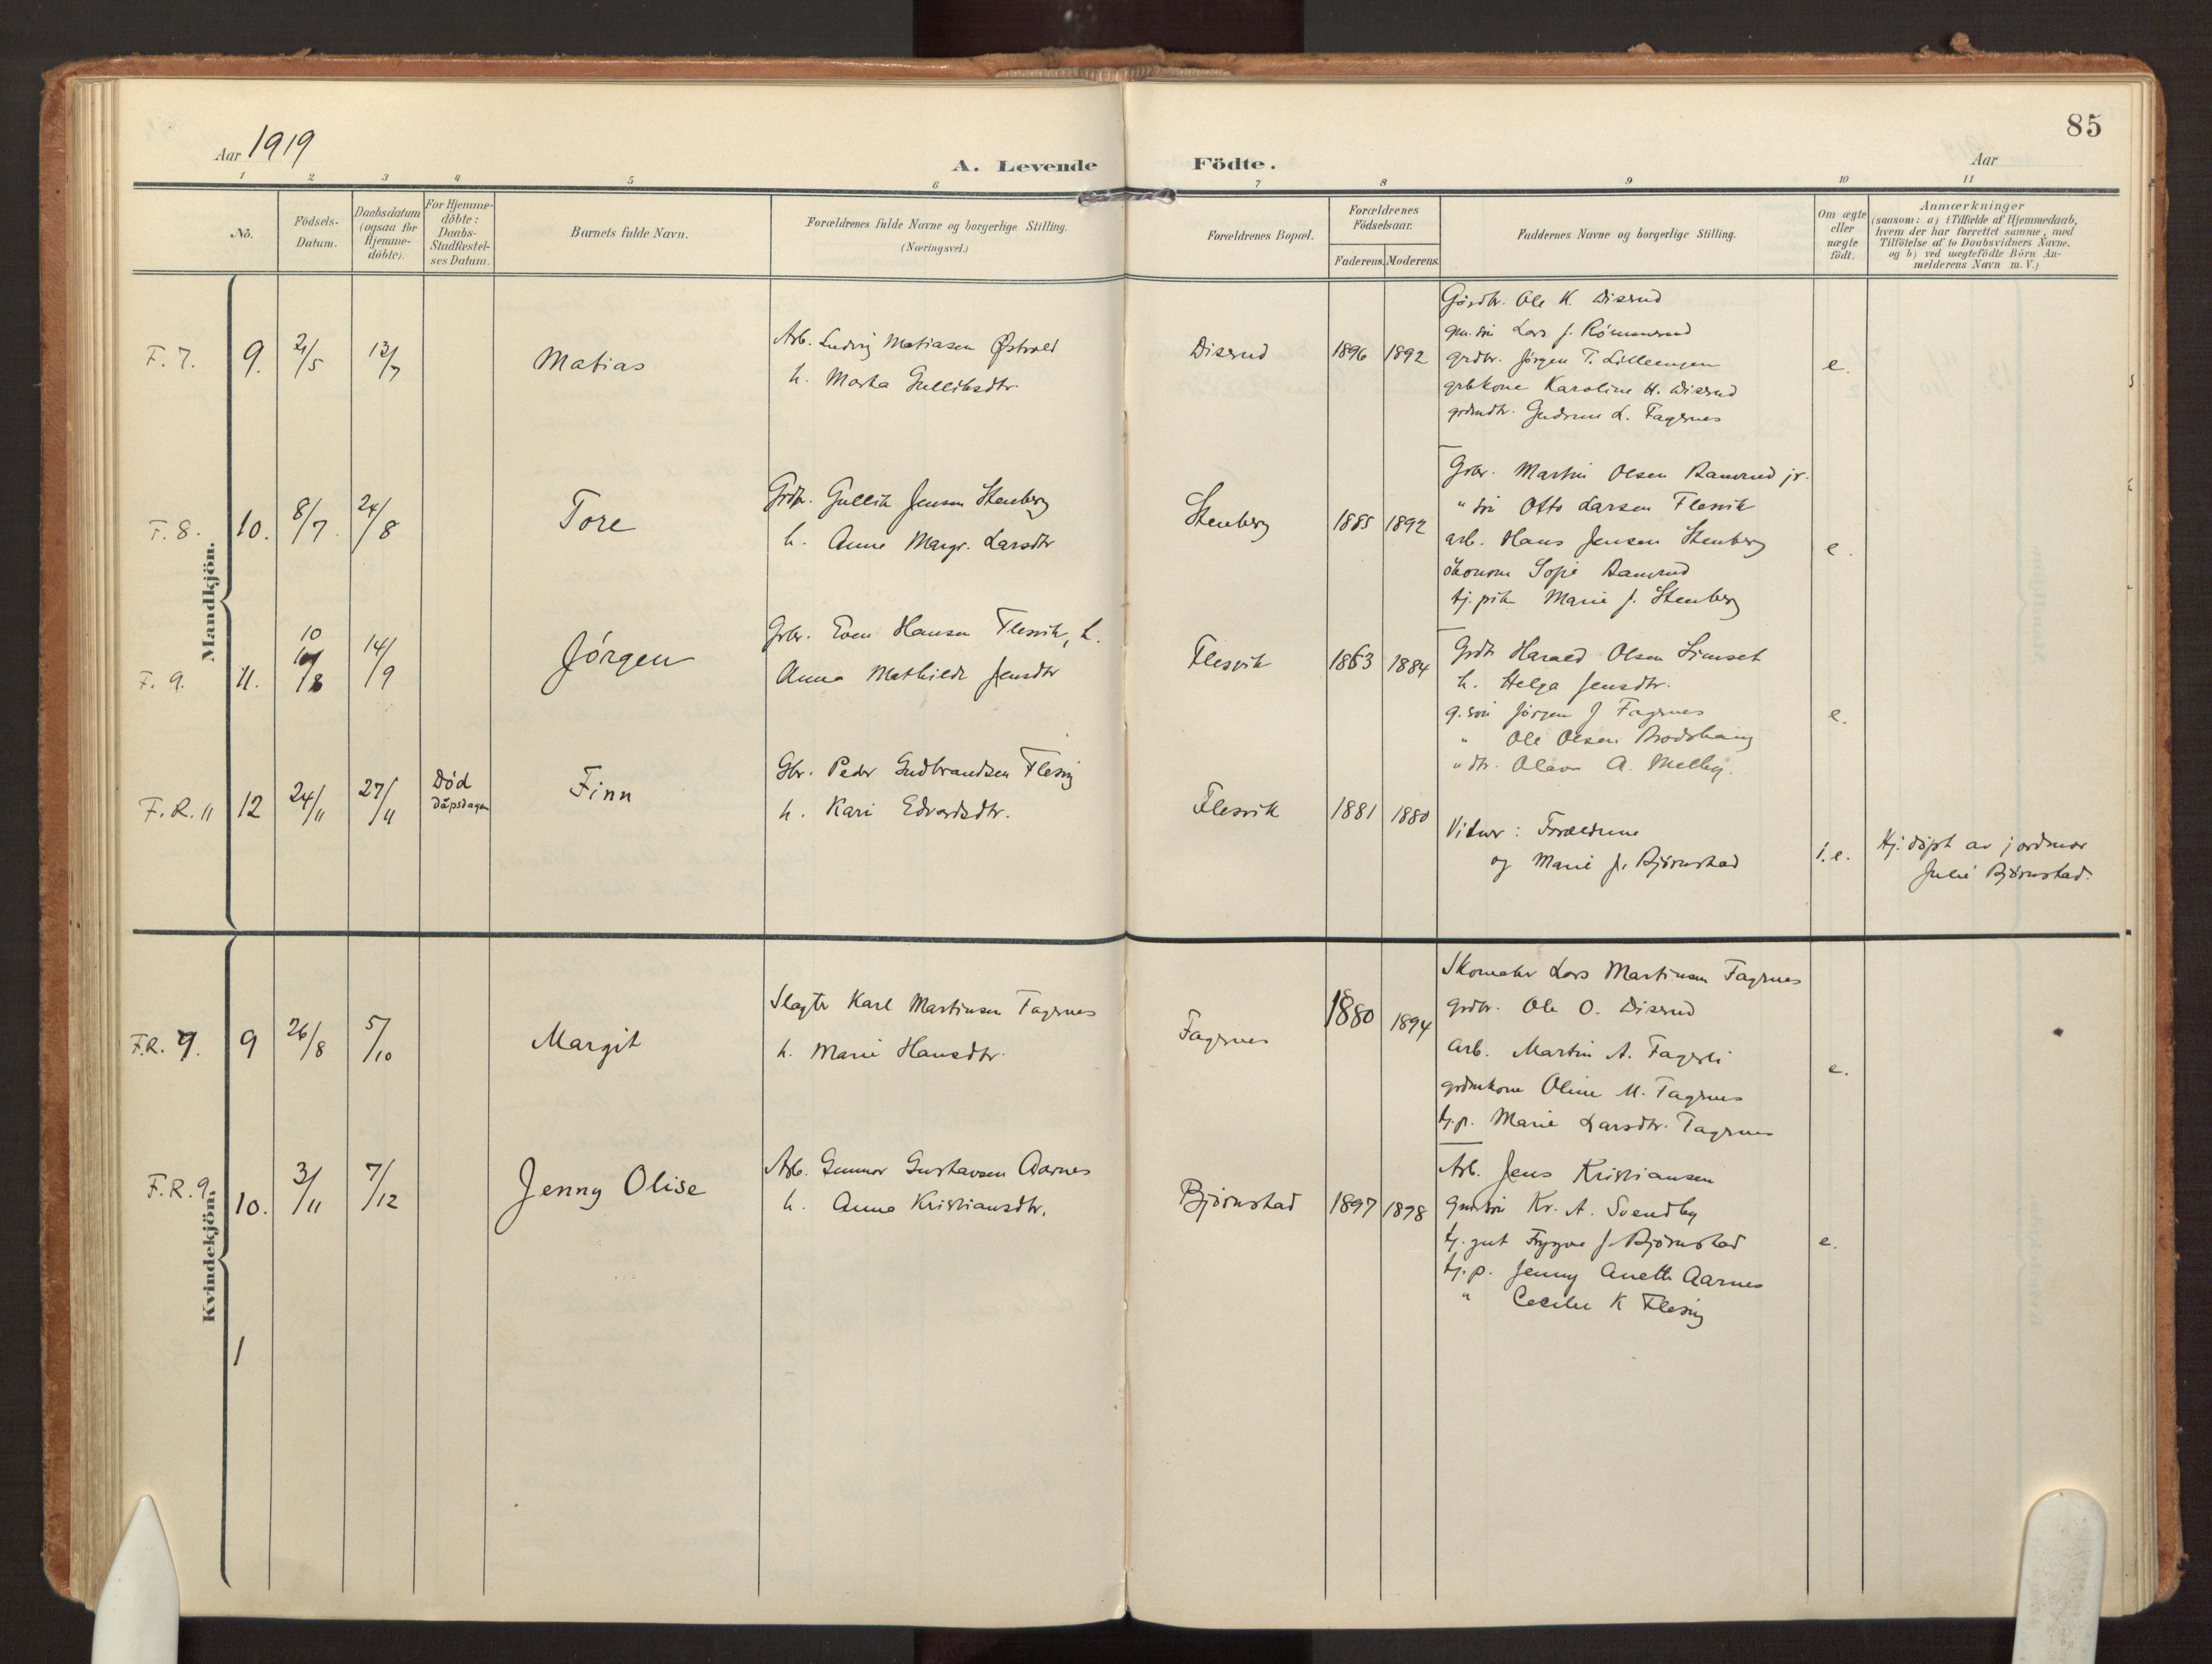 85
Aar 1919
A. Levende Födte.
Aar
1 2 3 4 5 6 7 8 9 10 11
No.
Födsels-
Datum.
Daabsdatum
(ogsaa for
Hjemme-
döbte).
For Hjemme-
döbte:
Daabs-
Stadfæstel-
ses Datum.
Barnets fulde Navn.
Forældrenes fulde Navne og borgerlige Stilling.
(Næringsvei.)
Forældrenes Bopæl.
Forældrenes
Födselsaar.
Faderens. Moderens.
Faddernes Navne og borgerlige Stilling.
Om ægte
eller
uægte
födt.
Anmærkninger
(saasom: a) i Tilfælde af Hjemmedaab,
hvem der har forrettet samme, med
Tilföielse af to Daabsvidners Navne,
og b) ved uægtefödte Börn An-
melderens Navn m. V.)
Mandkjön.
F. 7. 9. 2/5 13/7 Matias
Arb. Ludvig Matiasen Østvold
h. Marta Gulliksdtr.
Disrud 1896 1892
Gårdbr. Ole K. Disrud
gm. søn Lars J. Rømmerud
grdbr. Jørgen T. Lilleengen
grbkone Karoline H. Disrud
grdmdtr. Gudrun L. Fagernes
e.
F. 8. 10. 8/7. 24/8 Tore
Grdbr. Gullik Jensen Stenberg
h. Anne Margr. Larsdtr
Stenberg 1885 1892
Grbr. Martin Olsen Ramsrud jr.
" søn Otto Larsen Flesvik
arb. Hans Jensen Stenberg
økonom Sofie Ramsrud
tj. pike Marie J. Stenberg
e.
F. 9. 11. 10/8 14/9 Jørgen
Grbr. Even Hansen Flesvik, h.
Anna Mathilde Jensdtr
Flesvik 1863 1884
Grdbr Harald Olsen Simset
h. Helga Jensdtr.
g. søn Jørgen J Fagernes
" Ole Olsen
" dtr. Olava A. Melby.
e.
F. R. 11 12 24/11 27/11 Død
dåpsdagen
Finn
Gbr. Peder Gudbrandsen Flesvig
h. Kari Edvardsdtr.
Flesvik 1881 1880
Vidner: Forældrene
og Marie J. Bjørnstad
i. e.
Hj. døpt av jordmor
Julie Bjørnstad.
Kvindekjön.
F.R. 9. 9 26/8 5/10 Margit
Slagter Karl Martinsen Fagernes
h. Marie Hansdtr.
Fagernes 1880 1894
Skomaker Lars Martinsen Fagernes
grdbr. Ole O. Disrud
arb. Martin A. Fagerli
grdmkone Oline M. Fagernes
tj. p. Marie Larsdtr. Fagernes
e.
F. R. 9. 10. 3/11 7/12 Jenny Olise
Arb. Gunnar Gustavsen Aarnes
h. Anna Kristiansdtr.
Bjørnstad 1897 1898
Arb. Jens Kristiansen
gm. søn Kr. A. Svendby
tj. gut Trygve J. Bjørnstad
tj. p. Jenny Anette Aarnes
" Cecilie K Flesvig
e.
1